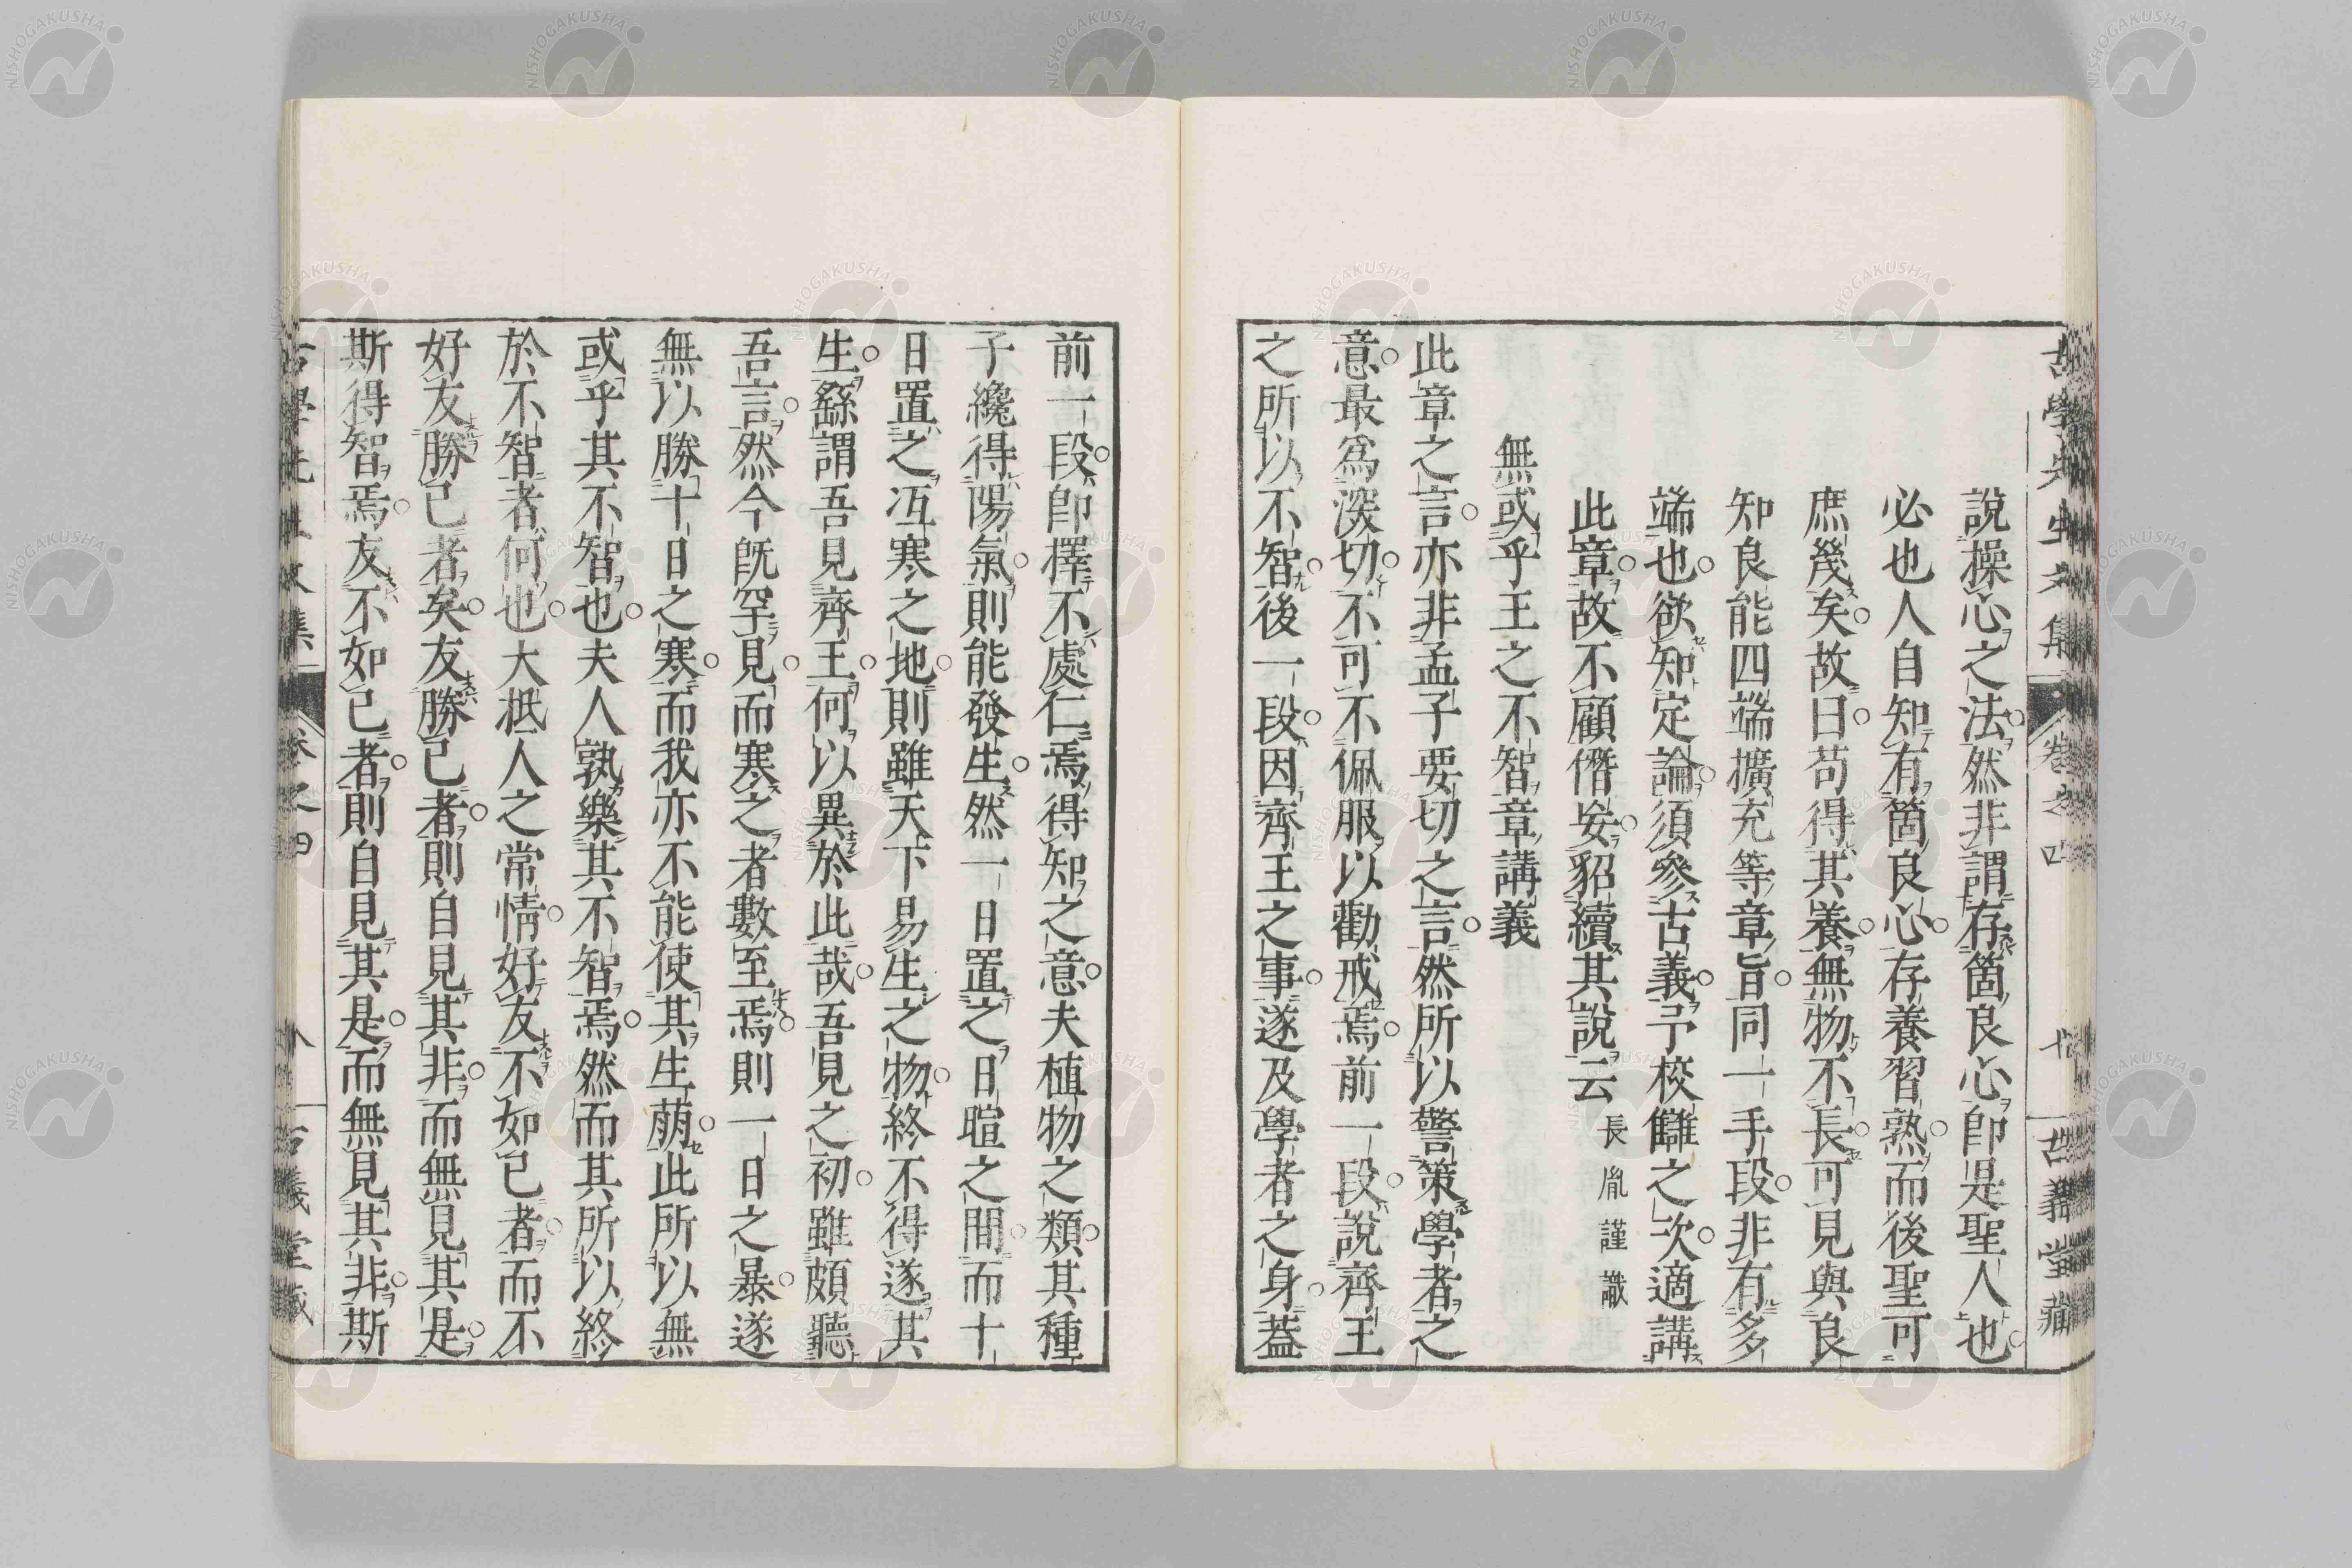 古學先生文集 卷之四 七 古義堂藏
說操心之法然非謂存箇良心卽是聖人也
必也人自知有箇良心存養習熟而後聖可
庶幾矣故曰苟得其養無物不長可見與良
知良能四端擴充等章旨同一手段非有多
端也欲知定論須參古義予校讎之次適講
此章故不顧僭妄貂續其說云 長胤謹識
無或乎王之不智章講義
此章之言亦非孟子要切之言然所以警策學者之
意最爲深切不可不佩服以勸戒焉前一段說齊王
之所以不智後一段因齊王之事遂及學者之身蓋
前一段卽擇不處仁焉得知之意夫植物之類其種
子纔得陽氣則能發生然一日置之日暄之間而十
日置之冱寒之地則雖天下易生之物終不得遂其
生繇謂吾見齊王何以異於此哉吾見之初雖頗聽
吾言然今旣罕見而寒之者數至焉則一日之暴遂
無以勝十日之寒而我亦不能使其生萠此所以無
或乎其不智也夫人孰樂其不智焉然而其所以終
於不智者何也大抵人之常情好友不如己者而不
好友勝己者矣友勝己者則自見其非而無見其是
斯得智焉友不如己者則自見其是而無見其非斯
古學先生文集 卷之四 八 古義堂藏
NISHOGAKUSHA